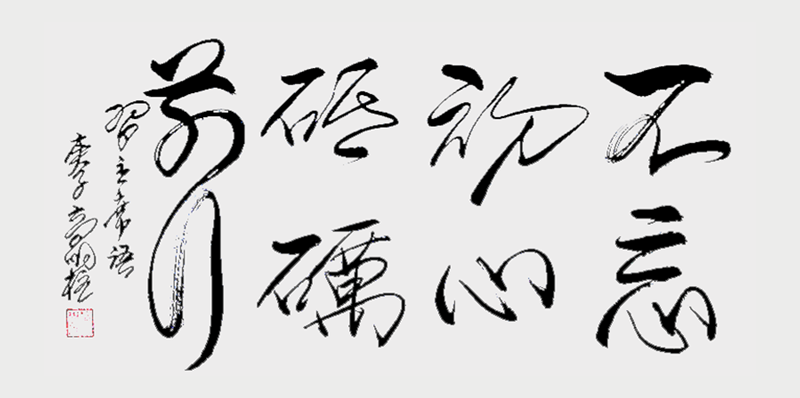 不忘
初心
砥礪
前行
習主席語
李高